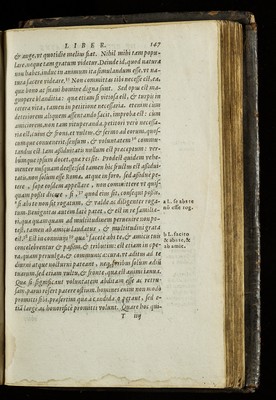 LIBER. 147
& auge, ut quotidie melius fiat. Nihil mihi tam popu-
lare, neque tam gratum videtur. Deinde id, quod natura
non habes, induc in animum ita simulandum esse, ut na-
tura facere videare. Non comitas tibi
quæ bono ac suavi homine digna sunt. Sed opus est ma-
gnopere blanditia: quæ etiam si vitiosa est, & turpis in
cetera vita, tamen in petitione necessaria. etenim cum
deteriorem aliquem assentando facit, improba est: cum
amiciorem, non tam vituperanda. petitori vero necessa-
ria est, cuius & frons, et vultus, & sermo ad eorum, quos-
cumque convenerit, sensum, & voluntatem commu-
tandus est. Iam assiduitatis nullum est præceptum: ver-
bumque ipsum docet, quæ res sit. Prodest quidem vehe-
menter nusquam discedere: sed tamen hic fructus est assidui-
tatis, non solum esse Romæ, atque in foro, sed assidue pe-
tere, sæpe eosdem appellare, non committere ut quis-
quam possit dicere
si abs te non sit rogatum, & valde ac diligenter roga-
tum. Benignitas autem late patet, & est in re familia-
ri, quæ quamquam ad multitudinem pervenire non po-
test, tamen ab amicis laudatur, & multitudini grata
est. Est in conviviis, quæ facito abs te, & amicis tuis
concelebrentur & passim, & tributim: est etiam in ope-
ra, quam pervulga, & communica: cura, ut aditus ad te
diurni atque nocturni pateant, neque foribus solum ædium
tuarum, sed etiam vultu, & fronte, quæ est animi ianua.
Quæ si significat voluntatem abditam esse ac retru-
sam, parvi refert patere ostium. homines enim non modo
promitti sibi, præsertim quæ a candidato petant, sed e-
tiam large, ac honorifice promitti volunt. Quare hoc qui-
T iij
a L. se abs te
b L. facito
& abs te, &
ab amic.